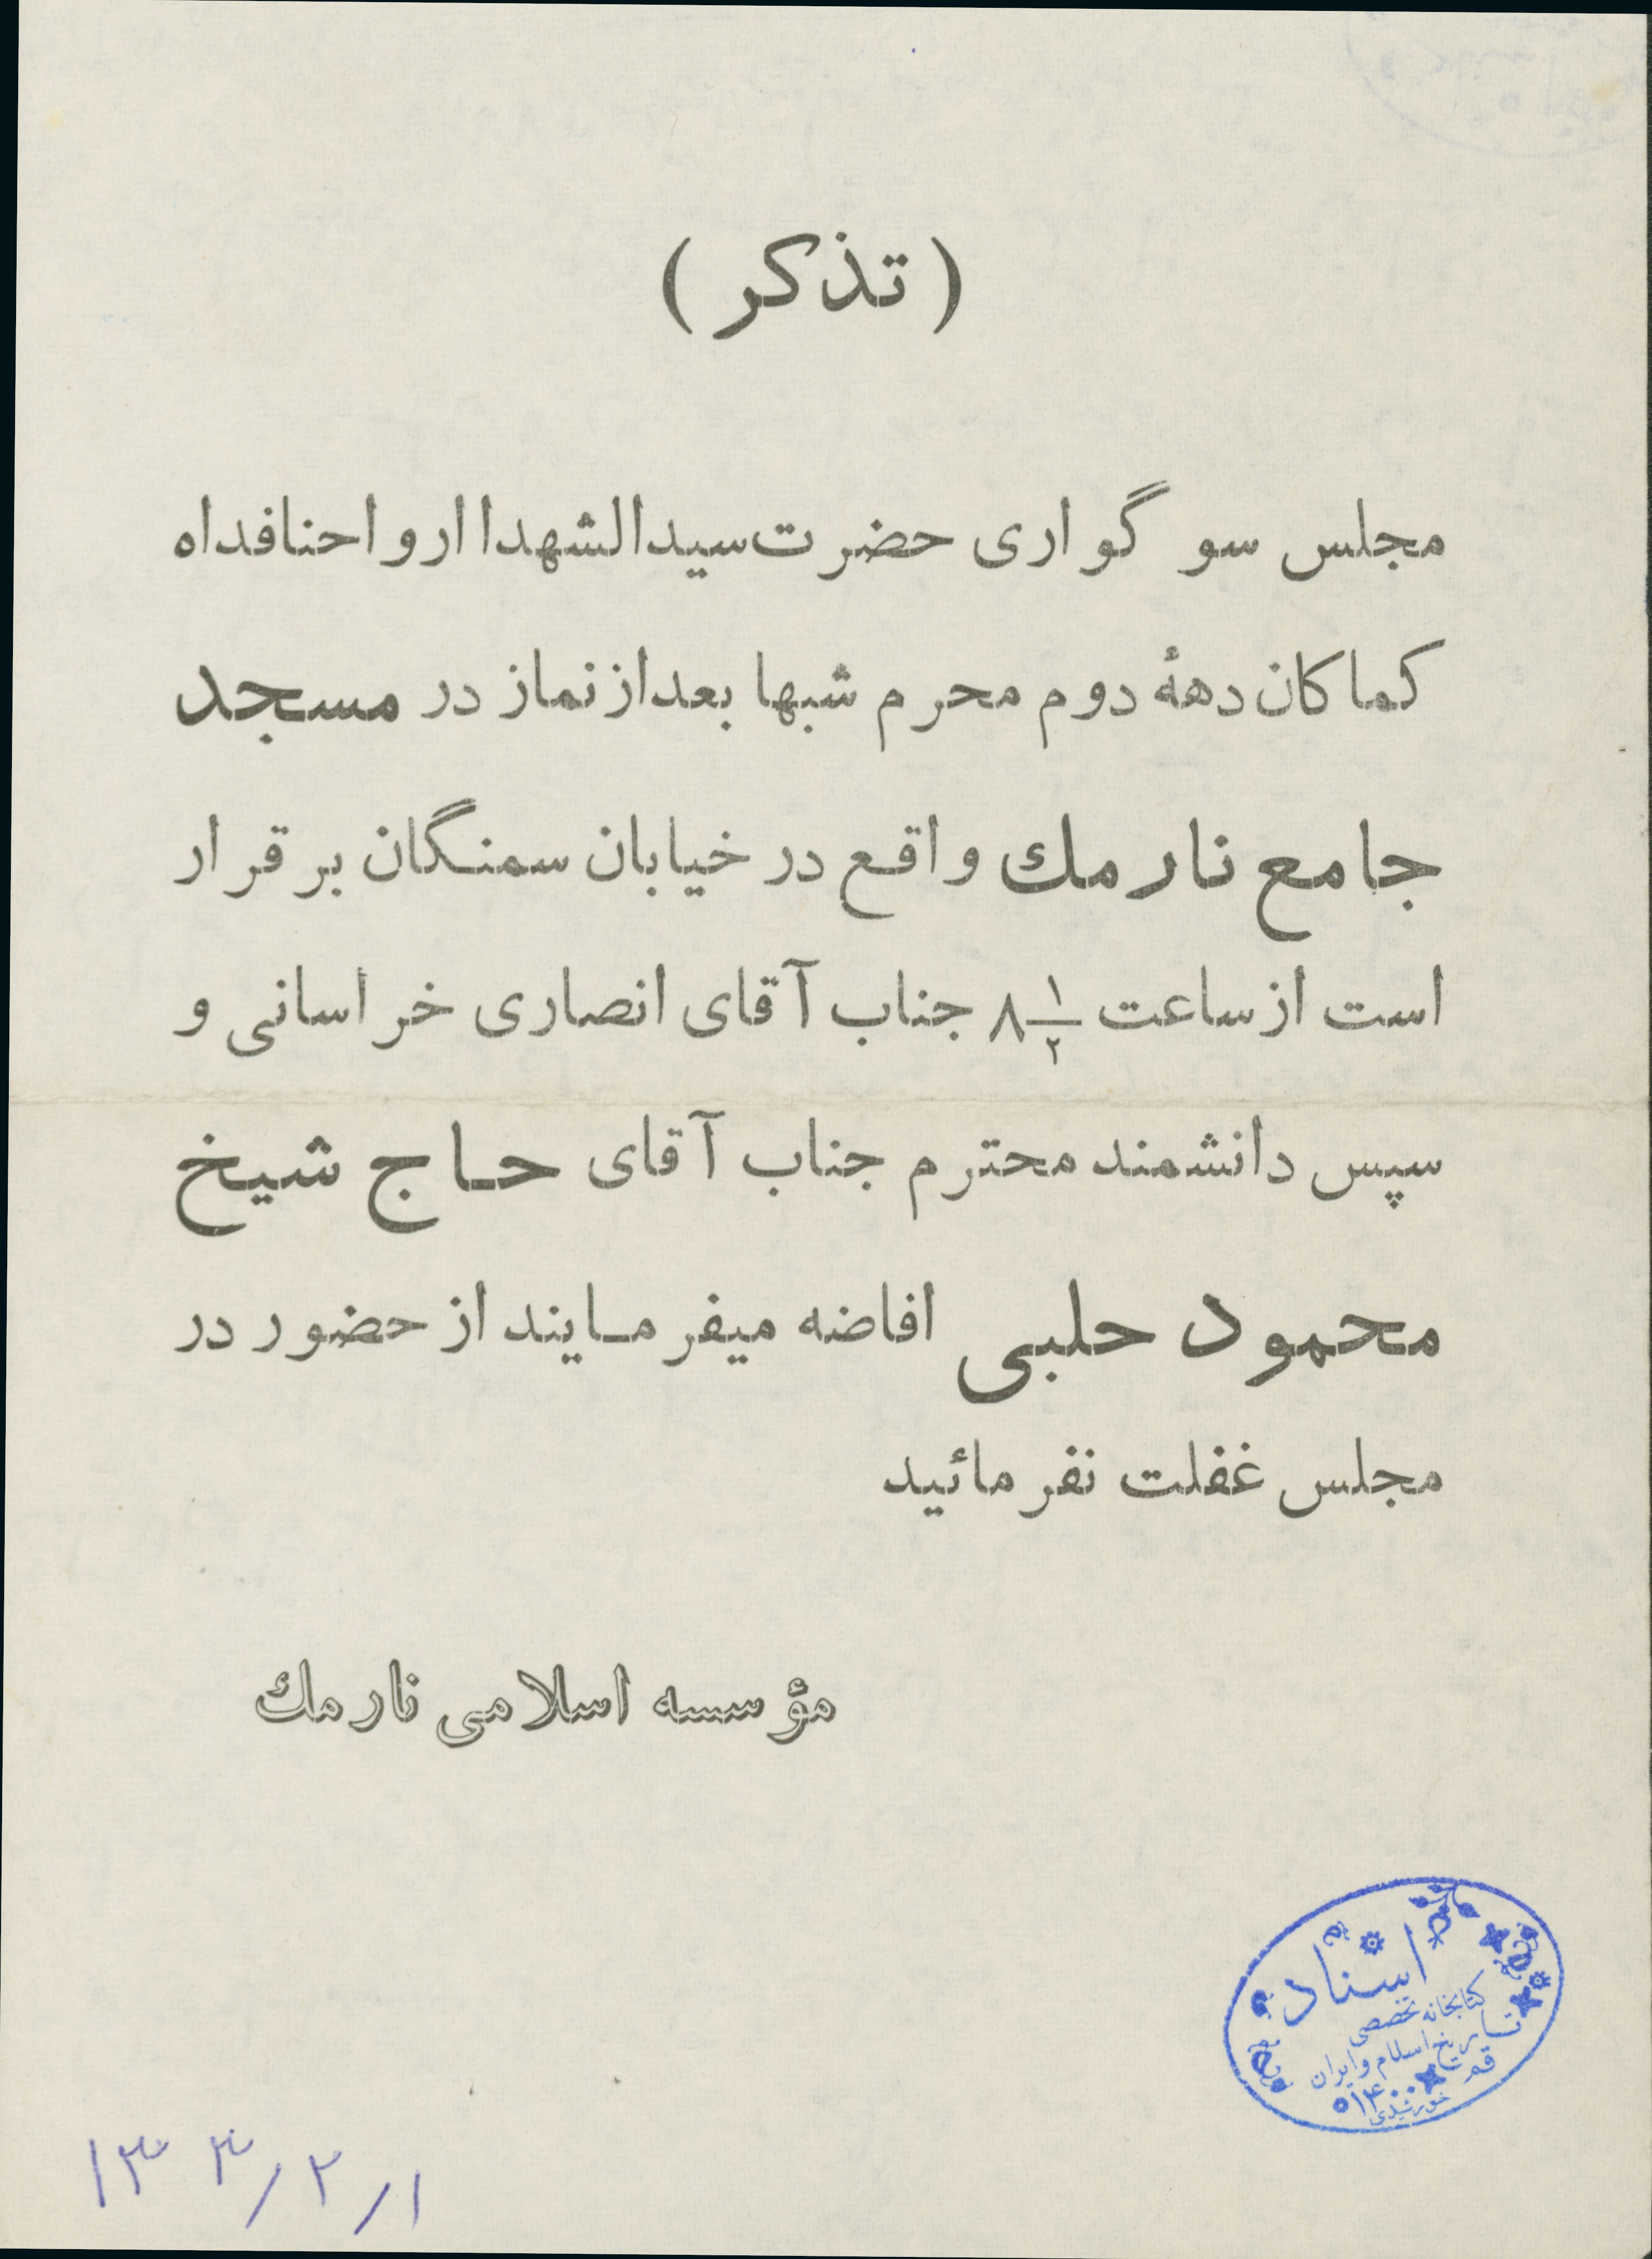 ( تذکر )
مجلس سوگواری حضرت سیدالشهدا ارواحنافداه
کماکان دههٔ دوم محرم شبها بعد از نماز در مسجد
جامع نارمك واقع در خیابان سمنگان برقرار
است از ساعت ۸ ۱/۲ جناب آقای انصاری خراسانی و
سپس دانشمند محترم جناب آقای حاج شیخ
محمود حلبی افاضه میفرمایند از حضور در
مجلس غفلت نفرمائید
مؤسسه اسلامی نارمك
اسناد
کتابخانه تخصصی
تاریخ اسلام و ایران
قم
خورشیدی